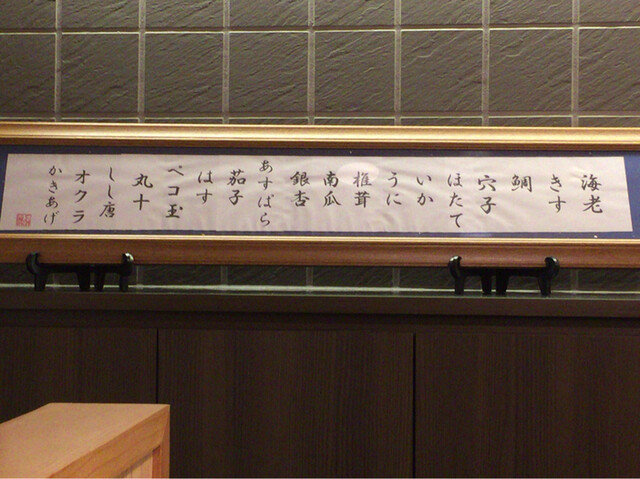 海老
きす
鯛
穴子
ほたて
いか
うに
椎茸
南瓜
銀杏
あすぱら
茄子
はす
ペコ玉
丸十
しし唐
オクラ
かきあげ